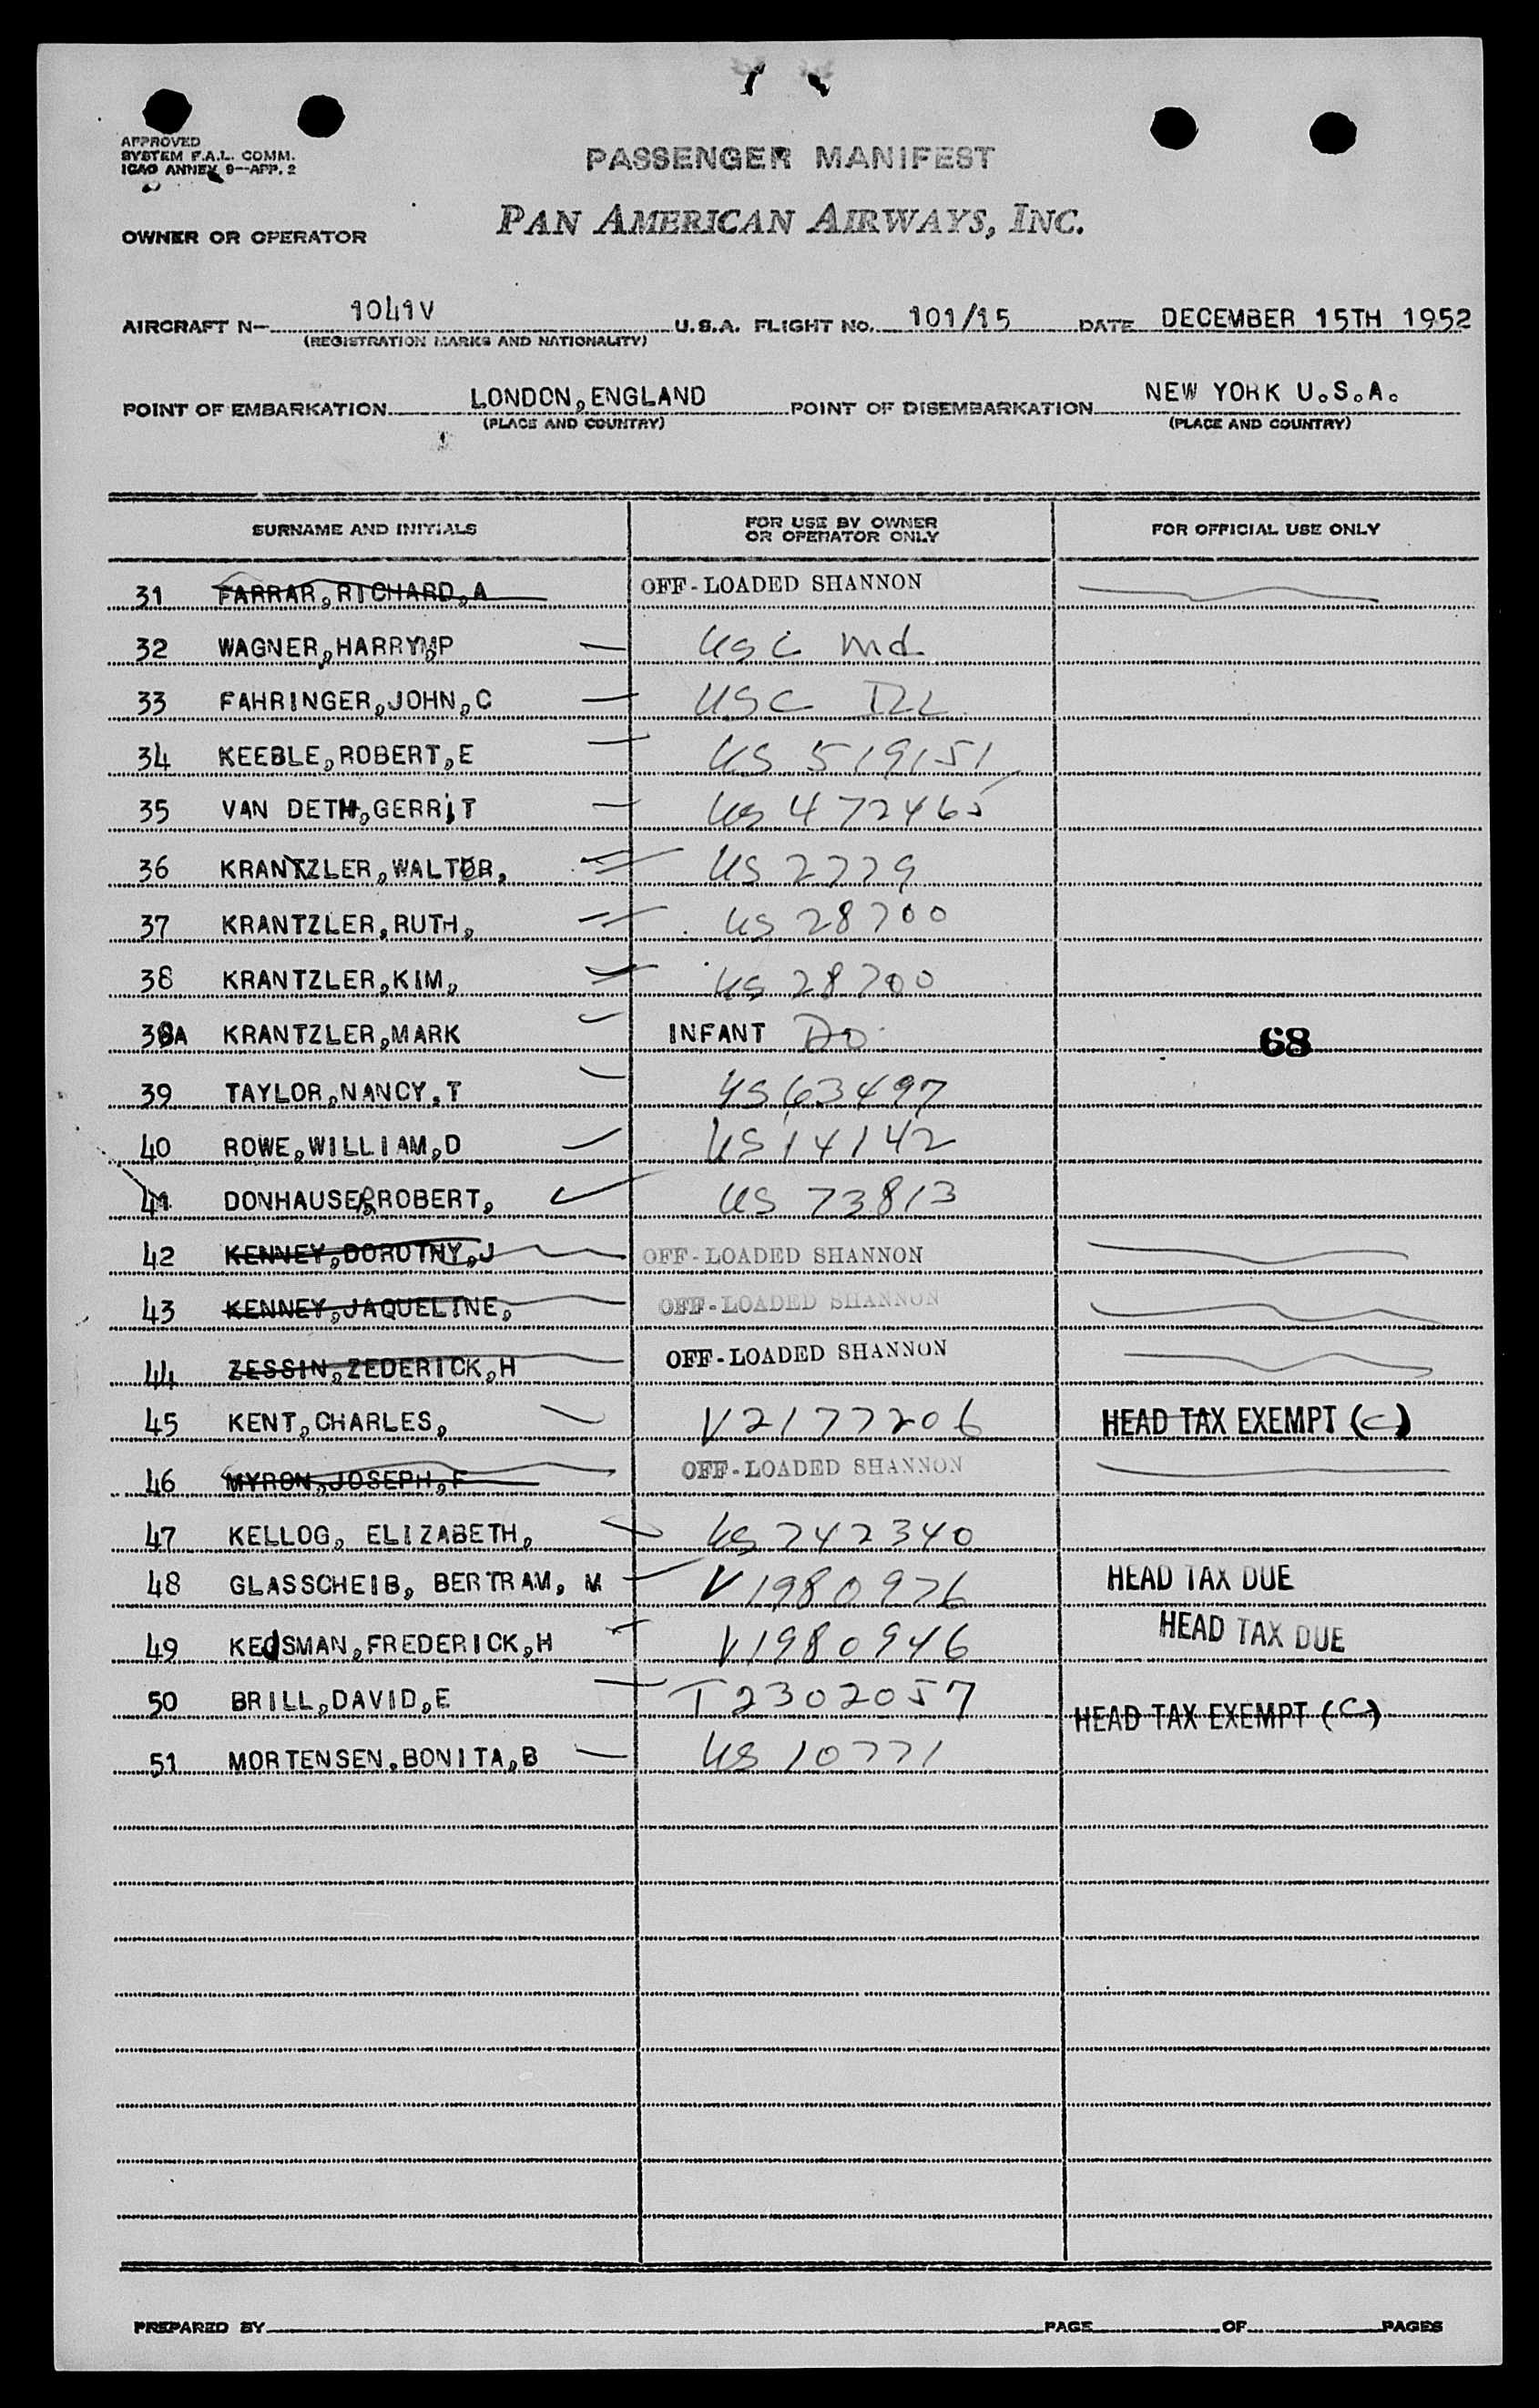 APPROVED
SYSTEM F.A.L. COMM.
ICAO ANNEX 9--APP. 2
PASSENGER MANIFEST
OWNER OR OPERATOR PAN AMERICAN AIRWAYS, INC.
AIRCRAFT N- 1041V U.S.A. FLIGHT NO. 101/15 DATE DECEMBER 15TH 1952
(REGISTRATION MARKS AND NATIONALITY)
POINT OF EMBARKATION LONDON, ENGLAND POINT OF DISEMBARKATION NEW YORK U.S.A.
(PLACE AND COUNTRY) (PLACE AND COUNTRY)
SURNAME AND INITIALS FOR USE BY OWNER OR OPERATOR ONLY FOR OFFICIAL USE ONLY
31 FARRAR, RICHARD, A OFF-LOADED SHANNON
32 WAGNER, HARRYM,P USC Md
33 FAHRINGER, JOHN, C USC ILL
34 KEEBLE, ROBERT, E US 519151
35 VAN DETH, GERRIT US 472465
36 KRANTZLER, WALTER, US 2779
37 KRANTZLER, RUTH, US 28700
38 KRANTZLER, KIM, US 28700
38A KRANTZLER, MARK INFANT DO 68
39 TAYLOR, NANCY, T US 63497
40 ROWE, WILLIAM, D US 14142
41 DONHAUSER, ROBERT, US 73813
42 KENNEY, DOROTHY, J OFF-LOADED SHANNON
43 KENNEY, JAQUELINE, OFF-LOADED SHANNON
44 ZESSIN, ZEDERICK, H OFF-LOADED SHANNON
45 KENT, CHARLES, V2177206 HEAD TAX EXEMPT (C)
46 MYRON, JOSEPH, F OFF-LOADED SHANNON
47 KELLOG, ELIZABETH, US 742340
48 GLASSCHEIB, BERTRAM, M V1980976 HEAD TAX DUE
49 KEOSMAN, FREDERICK, H V1980946 HEAD TAX DUE
50 BRILL, DAVID, E T2302057 HEAD TAX EXEMPT (C)
51 MORTENSEN, BONITA, B US 10771
PREPARED BY PAGE OF PAGES